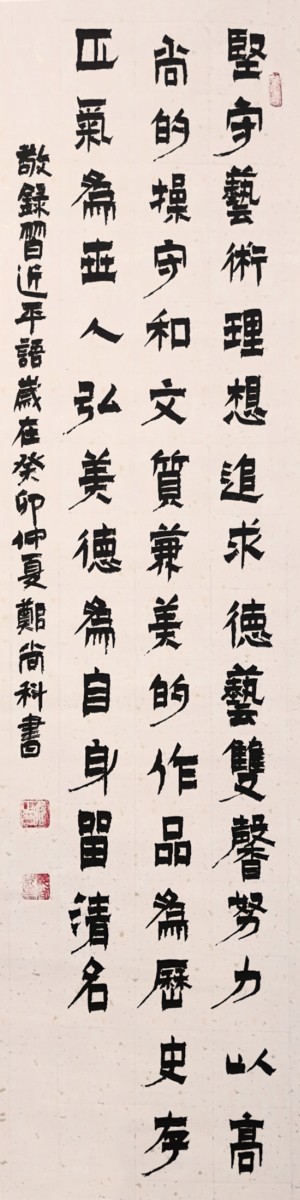 堅守藝術理想追求德藝雙馨努力以高
尚的操守和文質兼美的作品為歷史存
正氣為世人弘美德為自身留清名
敬録習近平語歲在癸卯仲夏鄭尚科書